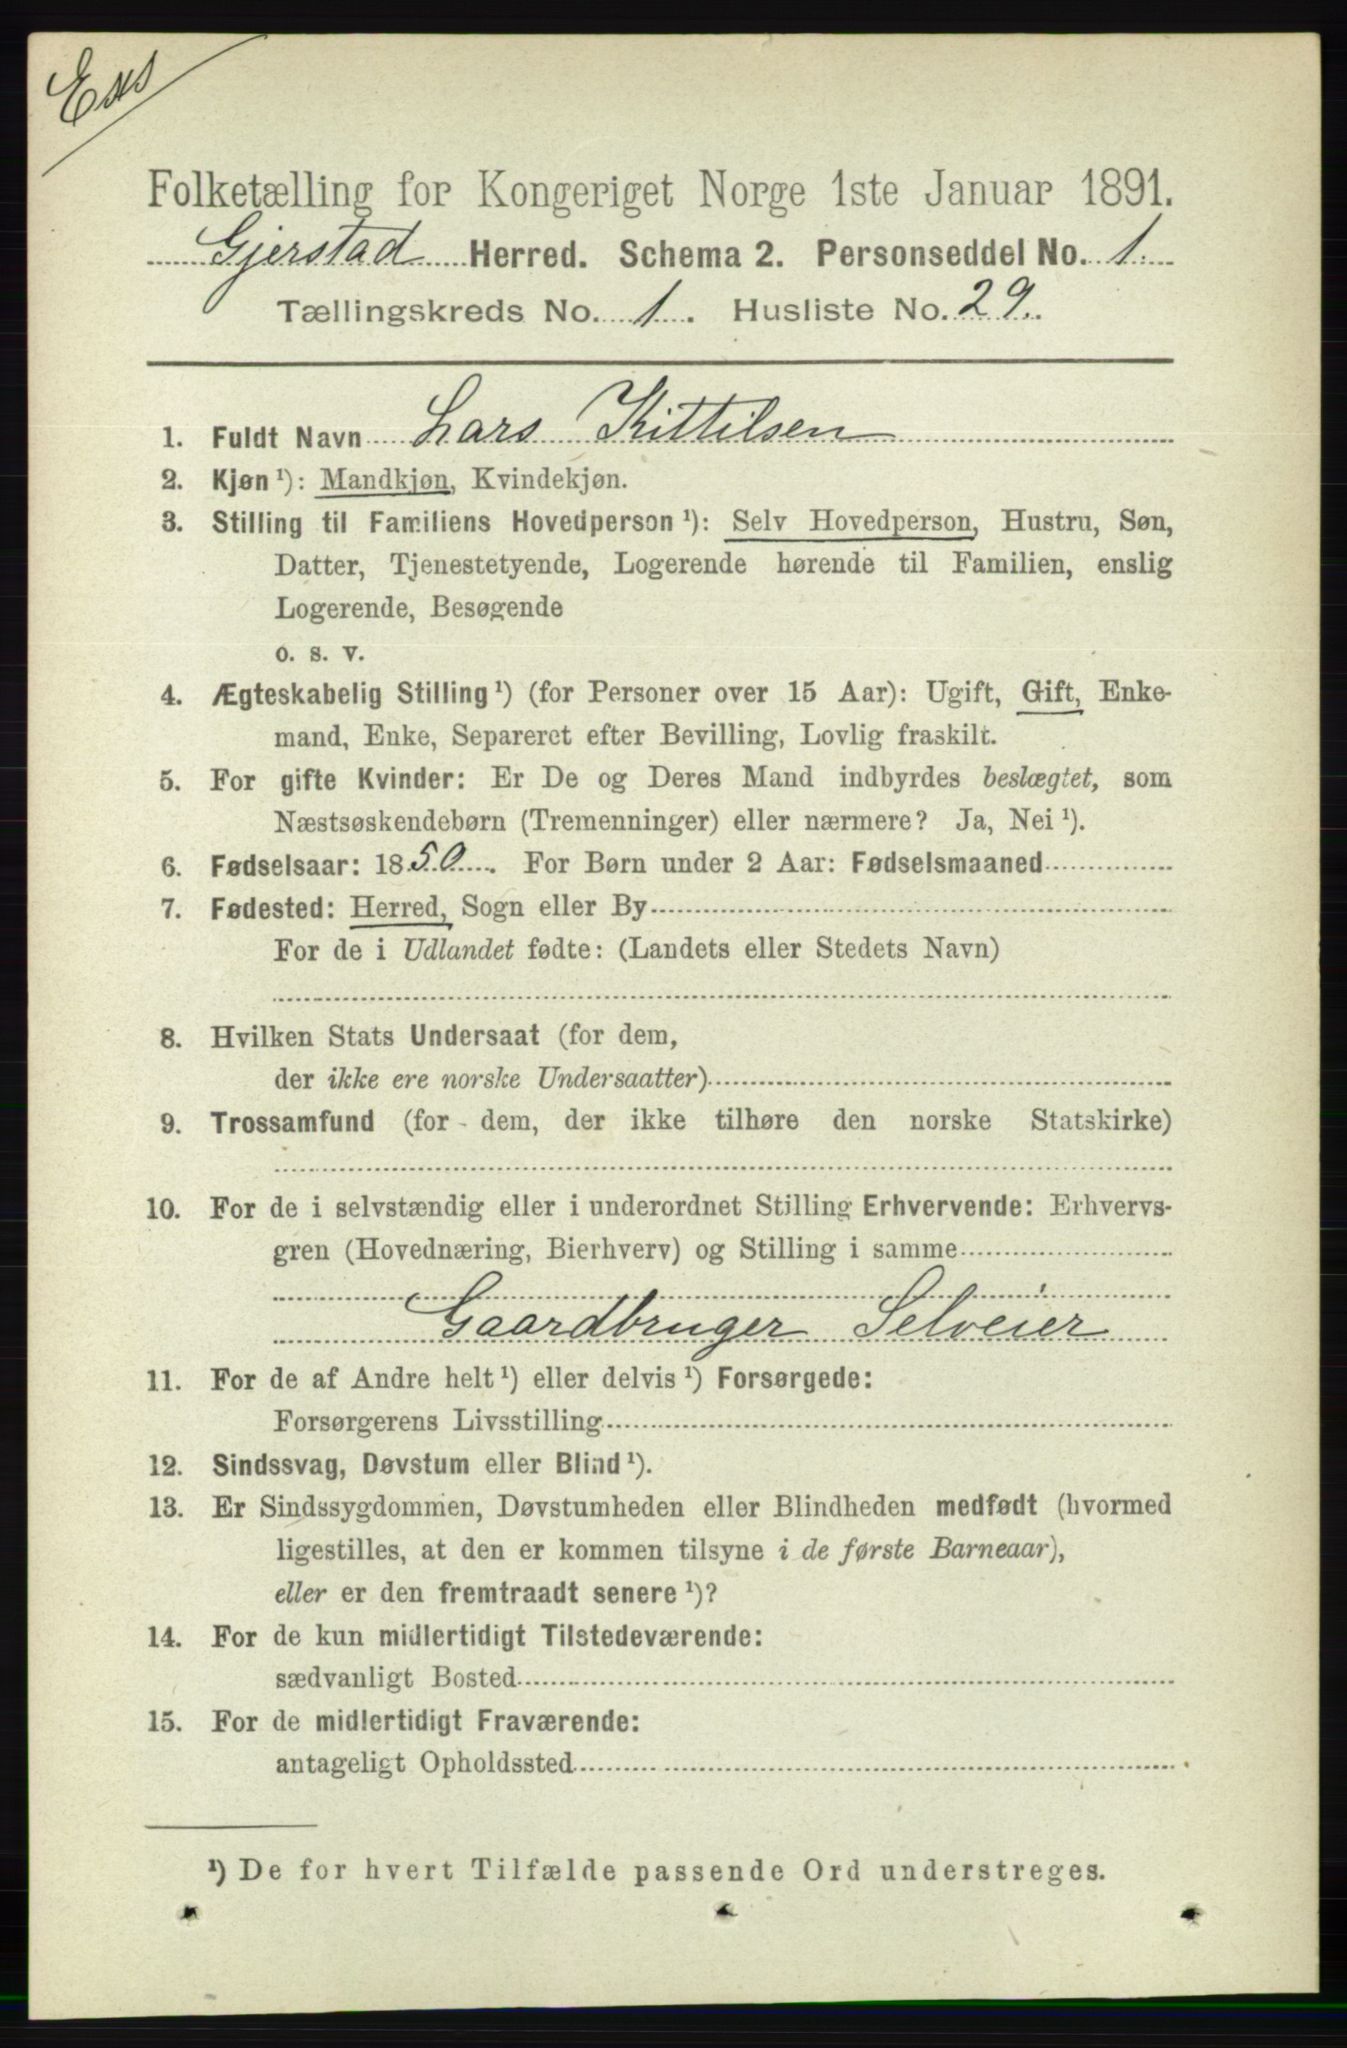 Folketælling for Kongeriget Norge 1ste Januar 1891.
Gjerstad Herred. Schema 2. Personseddel No. 1
Tællingskreds No. 1. Husliste No. 29.
1. Fuldt Navn Lars Kittilsen
2. Kjøn ¹): Mandkjøn, Kvindekjøn.
3. Stilling til Familiens Hovedperson ¹): Selv Hovedperson, Hustru, Søn,
Datter, Tjenestetyende, Logerende hørende til Familien, enslig
Logerende, Besøgende
o. s. v.
4. Ægteskabelig Stilling ¹) (for Personer over 15 Aar): Ugift, Gift, Enke-
mand, Enke, Separeret efter Bevilling, Lovlig fraskilt.
5. For gifte Kvinder: Er De og Deres Mand indbyrdes beslægtet, som
Næstsøskendebørn (Tremenninger) eller nærmere? Ja, Nei ¹).
6. Fødselsaar: 1850. For Børn under 2 Aar: Fødselsmaaned
7. Fødested: Herred, Sogn eller By
For de i Udlandet fødte: (Landets eller Stedets Navn)
8. Hvilken Stats Undersaat (for dem,
der ikke ere norske Undersaatter)
9. Trossamfund (for dem, der ikke tilhøre den norske Statskirke)
10. For de i selvstændig eller i underordnet Stilling Erhvervende: Erhvervs-
gren (Hovednæring, Bierhverv) og Stilling i samme
Gaardbruger Selveier
11. For de af Andre helt ¹) eller delvis ¹) Forsørgede:
Forsørgerens Livsstilling
12. Sindssvag, Døvstum eller Blind ¹).
13. Er Sindssygdommen, Døvstumheden eller Blindheden medfødt (hvormed
ligestilles, at den er kommen tilsyne i de første Barneaar),
eller er den fremtraadt senere ¹)?
14. For de kun midlertidigt Tilstedeværende:
sædvanligt Bosted
15. For de midlertidigt Fraværende:
antageligt Opholdssted
¹) De for hvert Tilfælde passende Ord understreges.